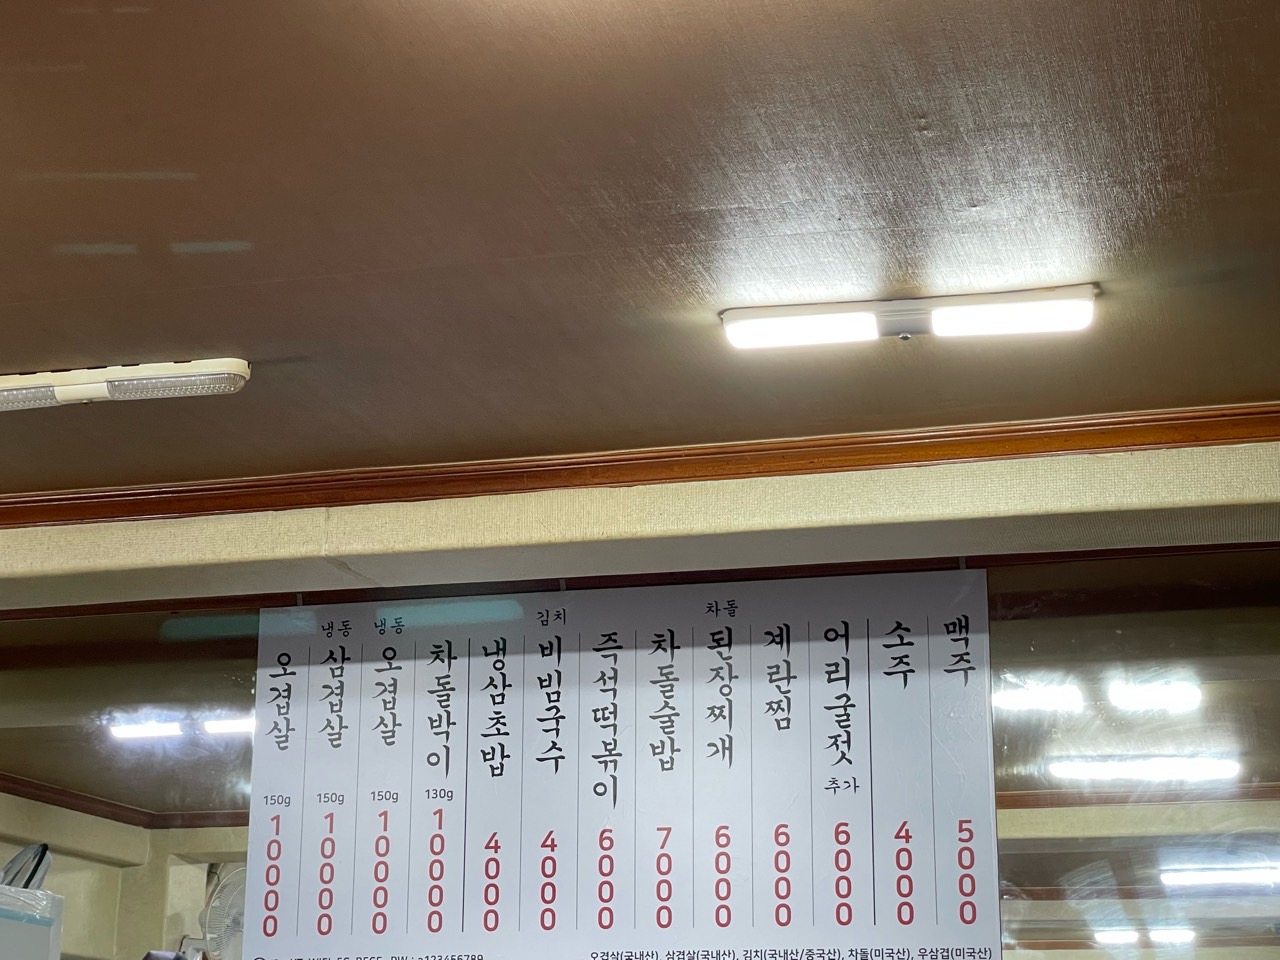 오겹살 150g 10000
냉동 삼겹살 150g 10000
냉동 오겹살 150g 10000
차돌박이 130g 10000
냉삼초밥 4000
김치 비빔국수 4000
즉석떡볶이 6000
차돌술밥 7000
차돌 된장찌개 6000
계란찜 6000
어리굴젓 추가 6000
소주 4000
맥주 5000
오겹살(국내산), 삼겹살(국내산), 김치(국내산/중국산), 차돌(미국산), 우삼겹(미국산)